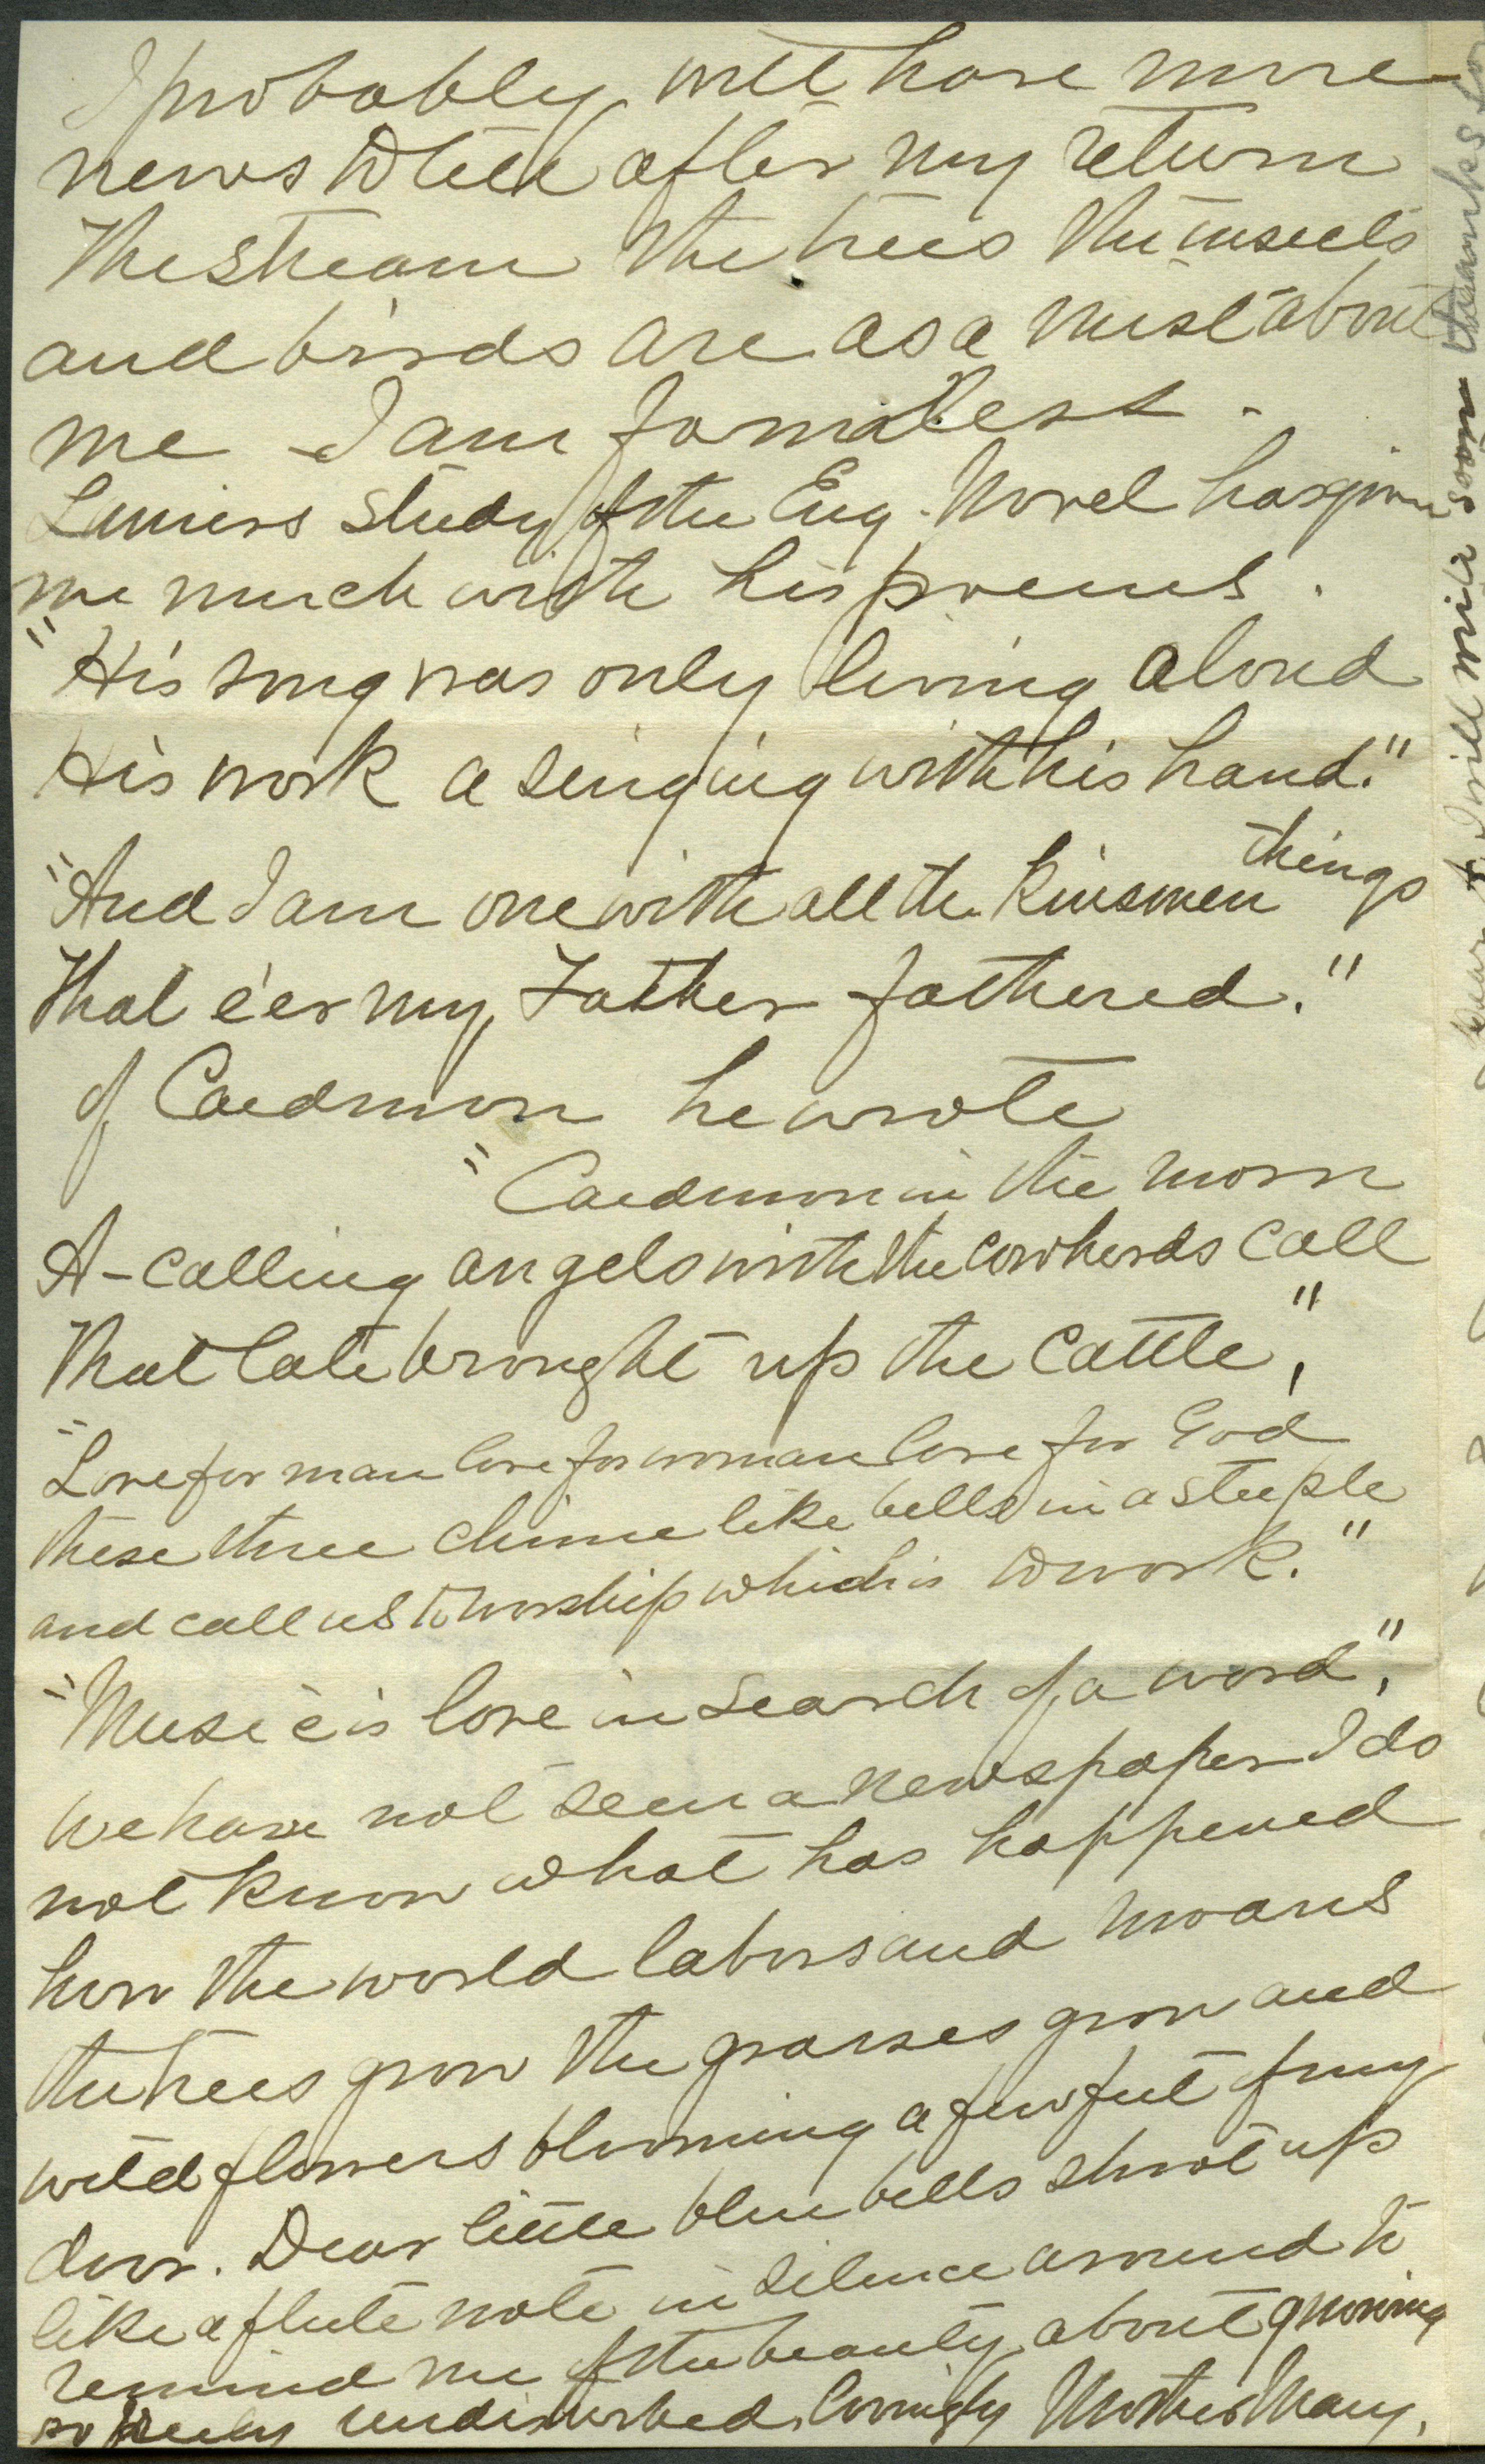 I probably will have more
news to tell after my return
The stream the trees the insects
and birds are as a mist about
me I am formless.
Laniers study of the Eng. Novel has given
me much with his poems.
"His song was only living aloud
His work a singing with his hand."
"And I am one with all the Kinsmen things
That e'er my Father fathered."
of Caedmon he wrote
"Caedmon in the morn
A-calling angels with the cowherds call
That late brought up the cattle",
"Love for man love for woman love for God
these three chime like bells in a steeple
and call us to worship which is to work."
"Music is love in search of a word",
We have not seen a newspaper I do
not know what has happened
how the world labors and moans
the trees grow the grasses grow and
wild flowers blooming a few feet of my
door. Dear little blue bells shoot up
like a flute note in silence around to
remind me of the beauty about growing
so undisturbed. Lovingly Mother Mary.
I will mix soon thanks to